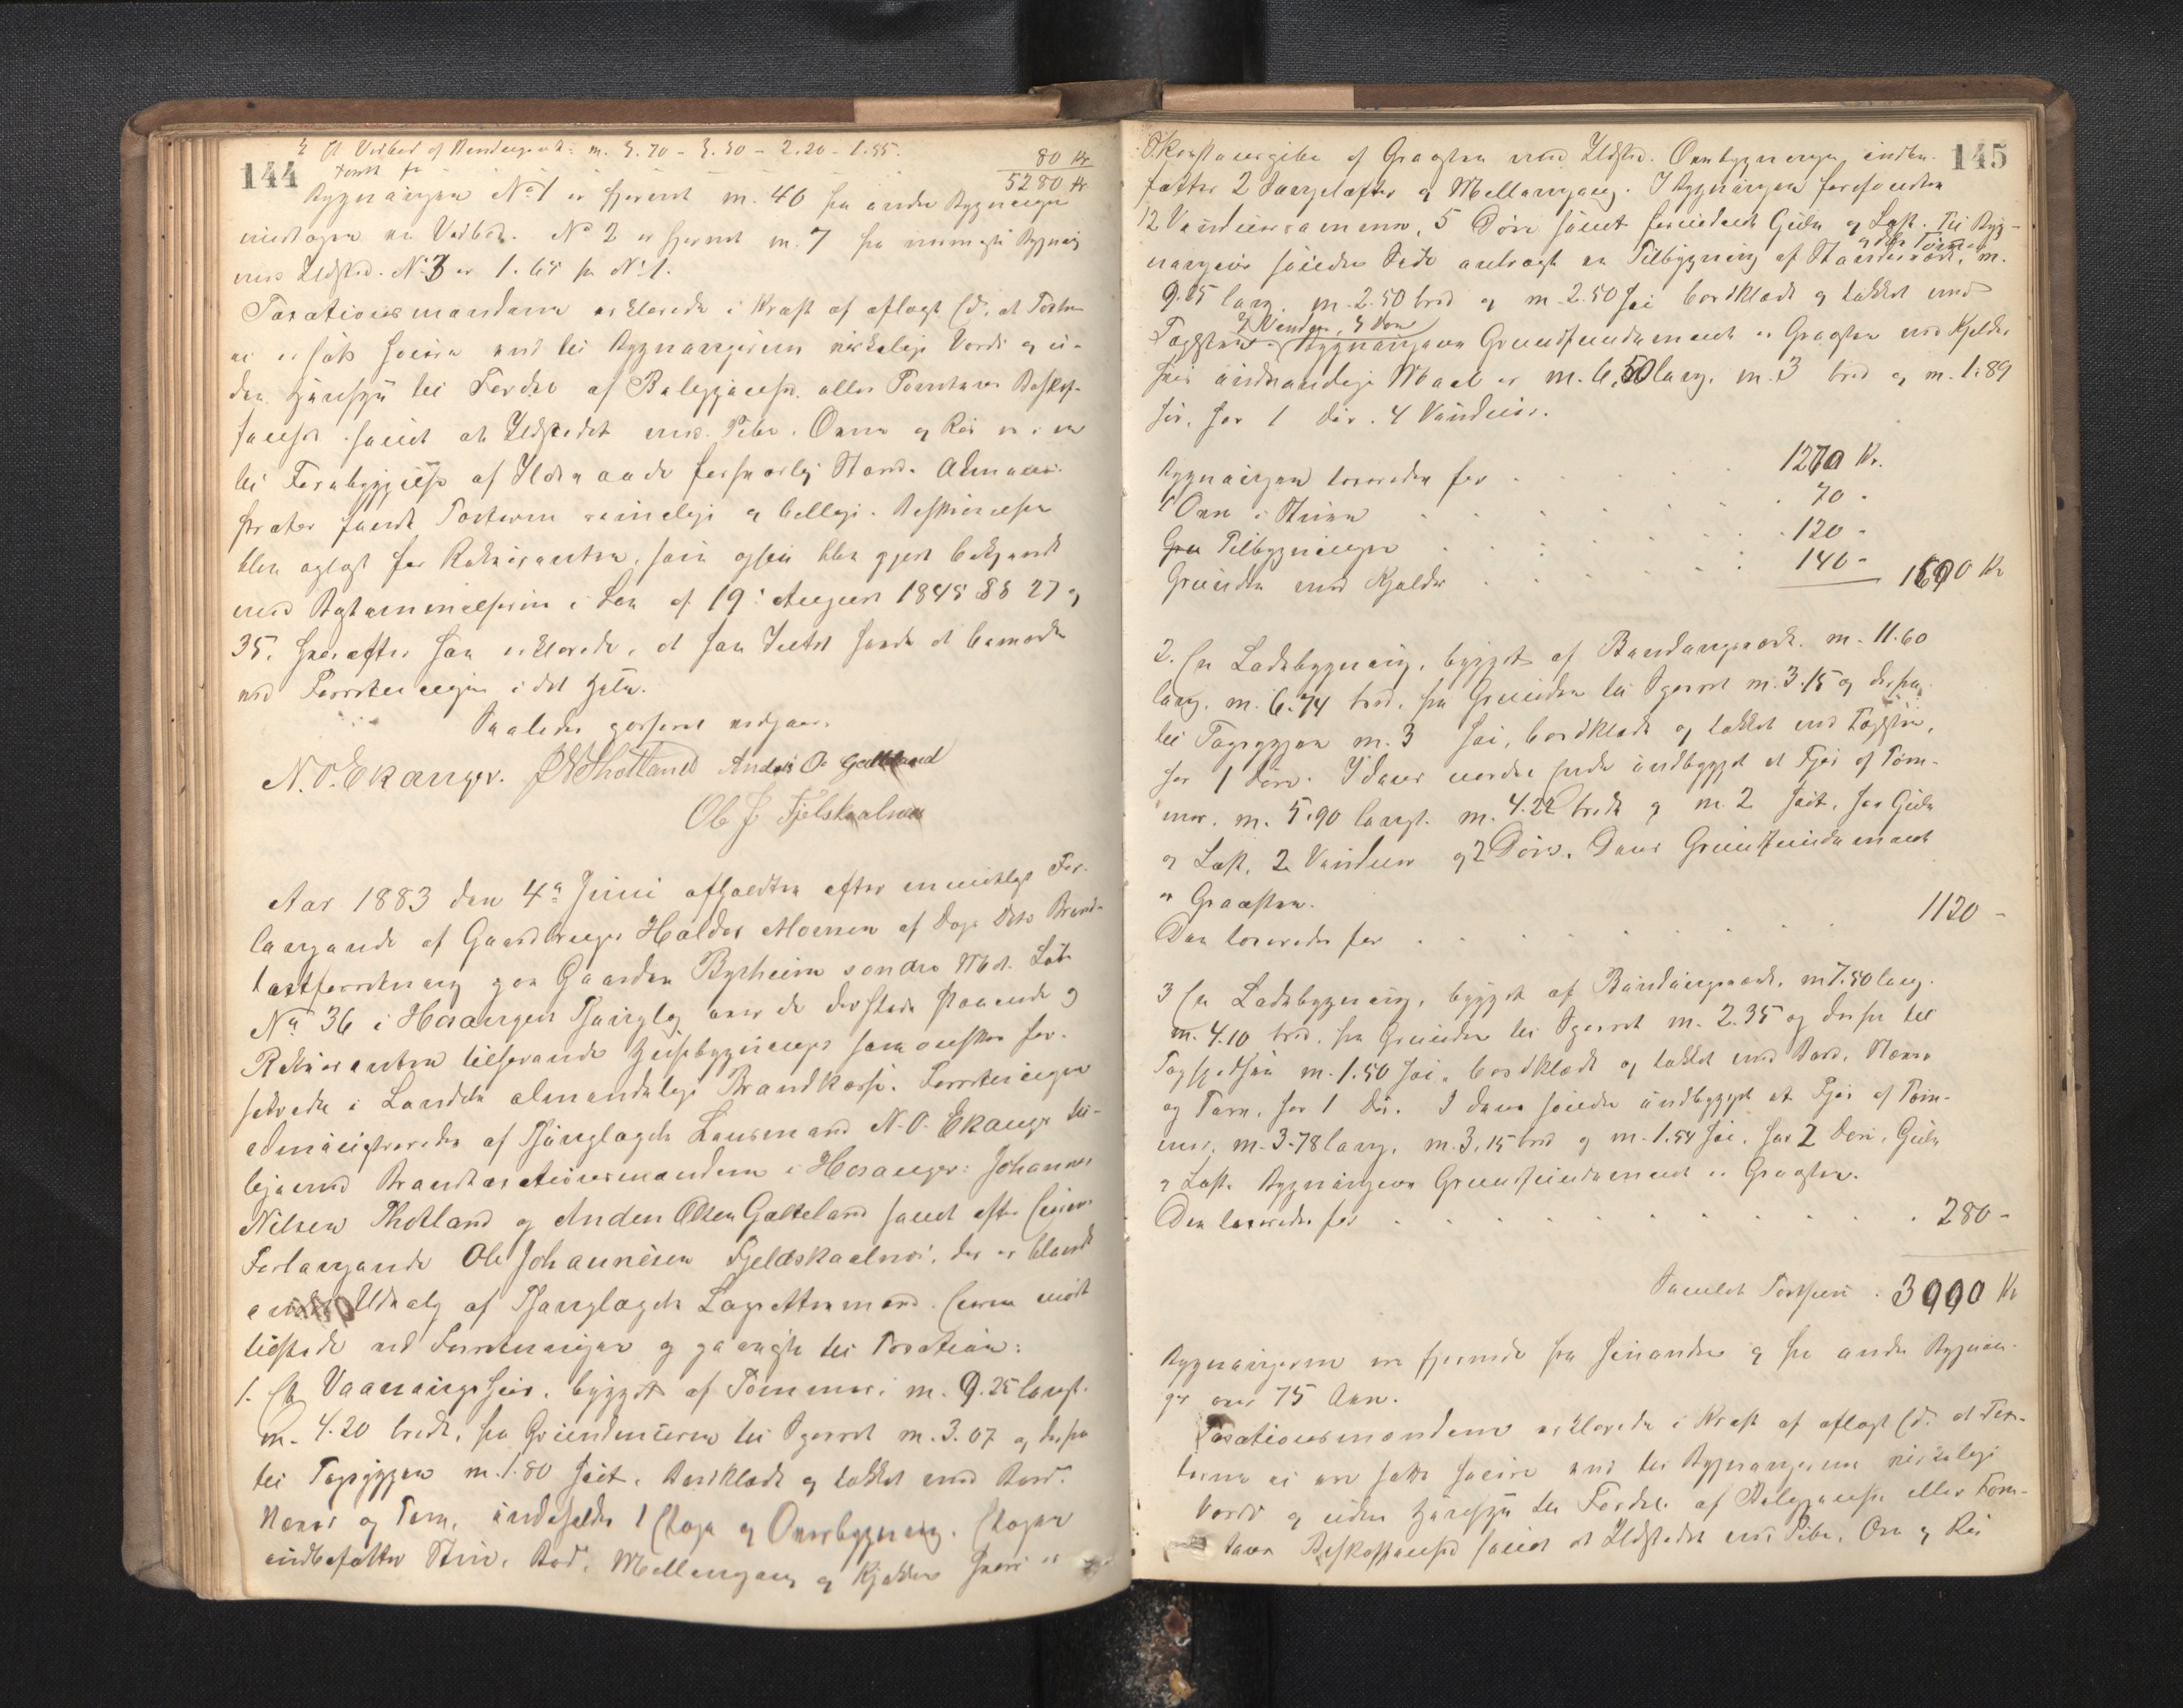 144
4. Et Vedbod af Stenderværk: m. 3.70 - 3.30 - 2.20 - 1.55.
Taxeret for 80 Kr
5280 Kr
Bygningen No 1 er fjernet m. 40 fra andre Bygninger
undtagen en Vedbod. No 2 er fjernet m. 7 fra nærmeste Bygning
med Ildsted. No 3 er 1.65 fra No 1.
Taxationsmændene erklærede i Kraft af aflagt Ed, at Taxter-
ne er satte saavel med til Bygningernes virkelige Værdi og u-
den Hensyn til Fordel af Beliggenhed eller Tomtens Beskaf-
fenhed samt at Ildstedet med Pibe, Ovne og Rør er i en
til Forebyggelse af Ildsvaade forsvarlig Stand. Admini-
strator fandt Taxterne rimelige og billige. Beskrivelsen
blev oplæst for Rekvirenten, som ogsaa blev gjort bekjendt
med Bestemmelserne i Lov af 19: August 1845 §§ 27 og
35. Hvorefter han erklærede, at han Intet havde at bemærke
ved Forretningen i det Hele.
Saaledes passeret vidner
N. O. Ekanger. J N Thotland Anders O Galteland
Ole J Fjelskaalnes
Aar 1883 den 4de Juni afholdtes efter mundtligt For-
langende af Gaardbruger Haldor Monsen af Dags Dato Brand-
taxtforretning paa Gaarden Byrheim søndre Mat. Løbe
No 36 i Hosanger Thinglag over de dersteds staaende og
Rekvirenten tilhørende Husebygninger som ønskes for-
sikrede i Landets almindelige Brandkasse. Forretningen
administreredes af Thinglagets Lensmand N. O. Ekanger til-
ligemed Brandtaxationsmændene i Hosanger: Johannes
Nilsen Thotland og Anders Olsen Galteland samt efter Eierens
Forlangende Ole Johannesen Fjeldskaalnes, der er blandt
Udvalg af Thinglagets Lagrettesmænd. Eieren mødt
tilstede ved Forretningen og paaviste til Taxation:
1. Et Vaaningshus, bygget af Tømmer, m. 9.25 langt.
m. 4.20 bredt, fra Grundmuren til Sperret m. 3.07 og derfra
til Tagryggen m. 1.80 høit, Bordklædt og tækket med Bord.
Næver og Torv, indeholder 1 Etage og Overbygning. Etagen
indbefatter Stue, Bod, Mellemgang og Kjøkken hvori er
145
Skorstenspibe af Graasten med Ildsted. Overbygningen indbe-
fatter 2 Værelser og Mellemgang. I Bygningen forefindes
12 Vinduesrammer, 5 Døre samt fornødent Gulv og Loft. Til Byg-
ningens søndre Side anbragt en Tilbygning af Stenderværk og delvis Tømmer, m.
9.25 lang, m. 2.50 bred og m 2.50 høi bordklædt og tækket med
Tagsten. 3 Vinduer, 3 Døre Bygningens Grundfundament er Graasten med Kjelder
hvis indvendige Maal er m. 6,50 lang, m. 3 bred og m. 1.89
høi, har 1 Dør. 4 Vinduer.
Bygningen taxeredes for . . . 1270 Kr.
1 Ovn i Stuen . . . 70 -
Tilbygningen . . . 120 -
Grunden med Kjælder . . . 140 - 1600 Kr
2. En Ladebygning, bygget af Bindingsværk, m. 11.60
lang, m. 6.74 bred, fra Grunden til Sperret m. 3.15 og derfra
til Tagryggen m. 3 høi, bordklædt og tækket med Tagsten,
har 1 Dør. I dens nordre Ende indbygget et Fjøs af Tøm-
mer, m. 5.90 langt. m. 4.22 bredt og m. 2 høit, har Gulv
og Loft, 2 Vinduer og 2 Døre. Dens Grundfundament
er Graasten.
Den taxeredes for . . . 1120 -
3 En Ladebygning, bygget af Bindingsværk, m 7.50 lang.
m. 4.10 bred, fra Grunden til Sperret m. 2.35 og derfra til
Tagspidsen m. 1.50 høi, bordklædt og tækket med Bord, Næver
og Torv, har 1 Dør. I dens søndre indbygget et Fjøs af Tøm-
mer, m. 3.78 lang, m. 3.15 bred og m. 1.54 høi, har 2 Døre, Gulv
og Loft. Bygningens Grundfundament er Graasten.
Den taxeredes for . . . 280 -
Samlet Taxtsum . 3000 Kr
Bygningerne er fjernede fra hinanden og fra andre Bygnin-
ger over 75 Alen.
Taxationsmændene erklærede i Kraft af aflagt Ed at Tax-
terne ei ere satte høiere end til Bygningernes virkelige
Værdi og uden Hensyn til Fordel af Beliggenhed eller Tom-
tens Beskaffenhed samt at Ildstedet med Pibe, Ovn og Rør